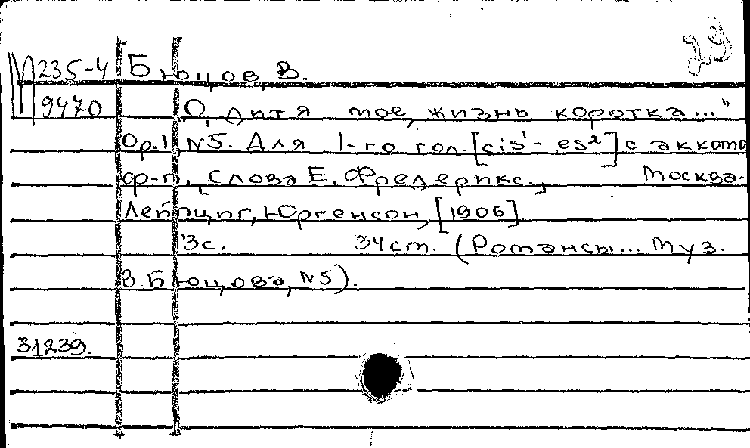 29
М 235-4 Бюцов, В.
9470 О, дитя мое, жизнь коротка..."
Op.1 №5. Для 1-го гол. [cis¹ - es²] с аккомп
ф-п., Слова Е. Фредерикс., Москва-
Лейпциг, Юргенсон, [1906]
3с. 34 ст. (Романсы... муз.
В. Бюцова, №5).
31239.